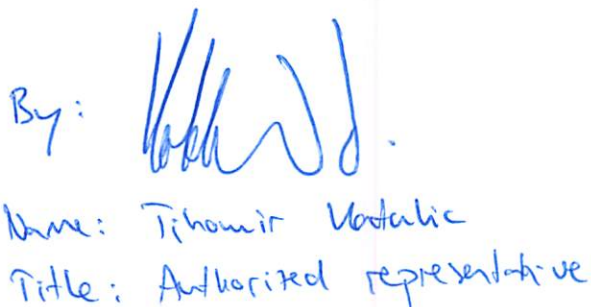 By:
Name: Tihomir
Title: Authorized representative